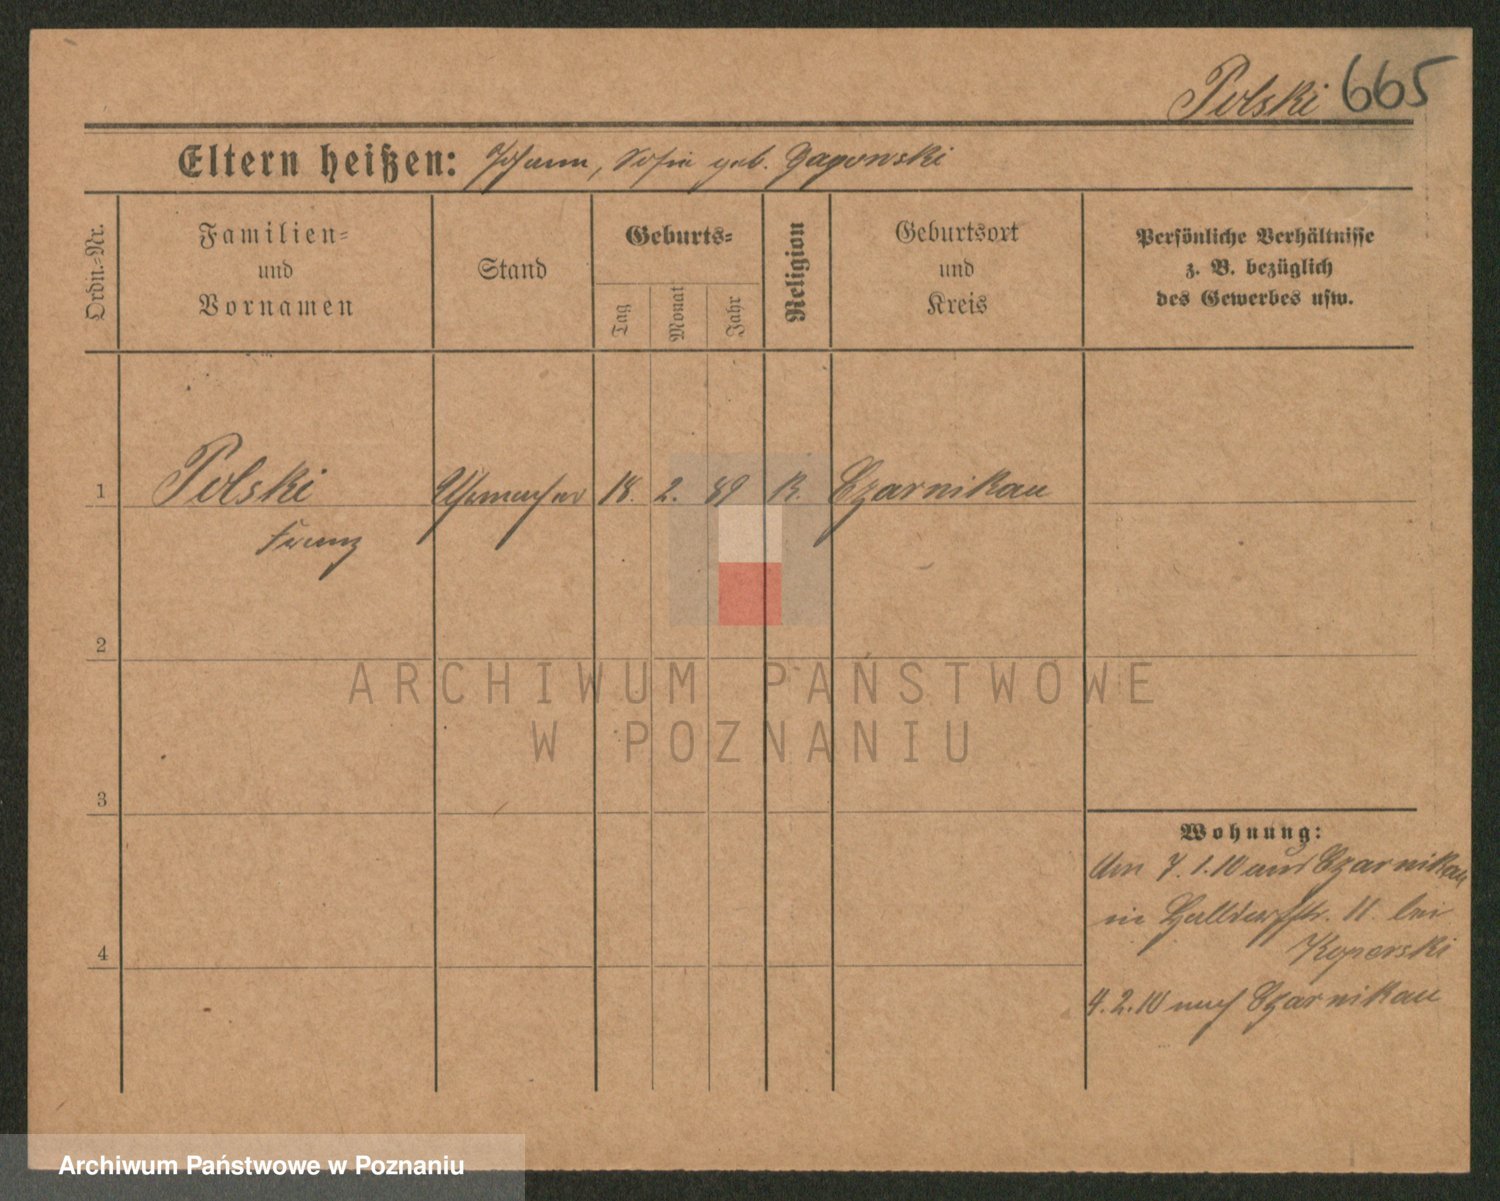 Polski 665
Eltern heißen: Johann, Sofie geb. Gagowski
Ordn.-Nr.
Familien-
und
Vornamen
Stand
Geburts-
Tag
Monat
Jahr
Religion
Geburtsort
und
Kreis
Persönliche Verhältnisse
z. B. bezüglich
des Gewerbes usw.
1 Polski Uhrmacher 18. 2. 89 K. Czarnikau
Franz
2
3
4
Wohnung:
Am 7.1.10 aus Czarnikau
in Halldorfstr. 11. bei
Koperski
4.2.10 nach Czarnikau
ARCHIWUM PAŃSTWOWE
W POZNANIU
Archiwum Państwowe w Poznaniu